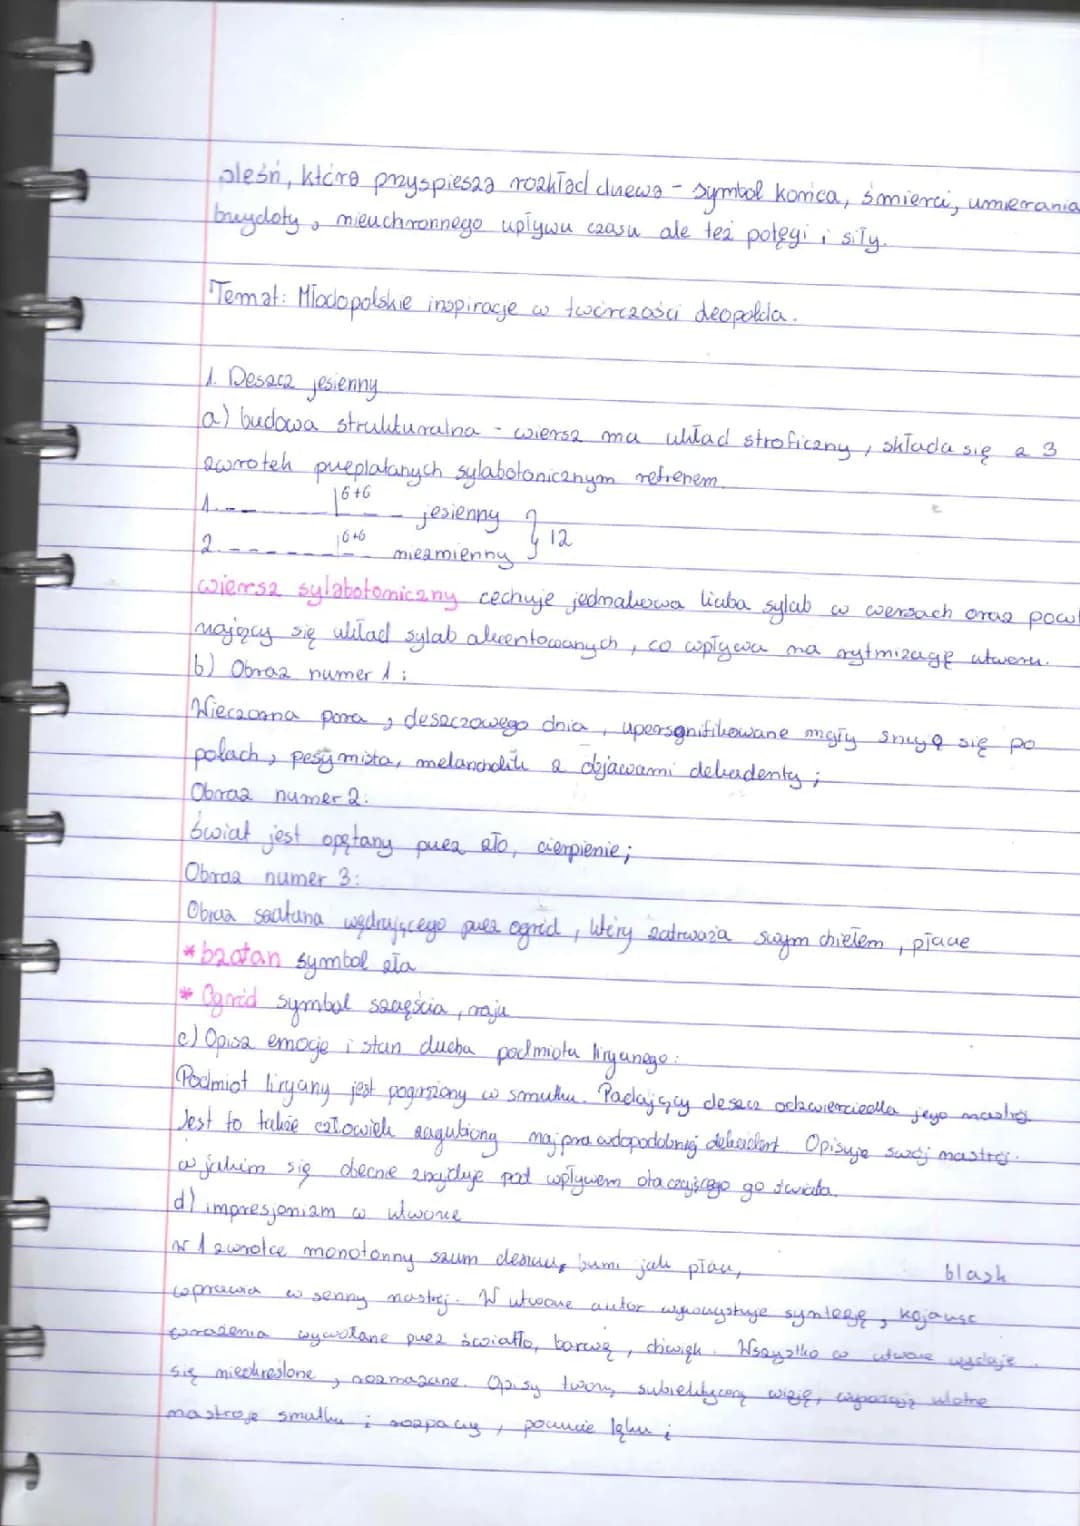 pleśń, która przyspiesza rozkład drzewa - symbol końca, śmierci, umierania
brzydoty, nieuchronnego upływu czasu ale też potęgi i siły.
Temat: Młodopolskie inspiracje w twórczości Leopolda.
1. Deszcz jesienny
a) budowa strukturalna - wiersz ma układ stroficzny, składa się z 3
zwrotek przeplatanych sylabotonicznym refrenem.
1. -- ______ |6+6 -- - jesienny } 12
2. ------ |6+6 -- niezmienny
wiersz sylabotoniczny cechuje jednakowa liczba sylab w wersach oraz powt
rzający się układ sylab akcentowanych, co wpływa na rytmizację utworu.
b) Obraz numer 1:
Wieczorna pora, deszczowego dnia, upersonifikowane mgły snują się po
polach, pesymista, melancholik z objawami dekadenty;
Obraz numer 2:
Świat jest opętany przez zło, cierpienie;
Obraz numer 3:
Obraz szatana wędrującego przez ogród, który zatrważa swym dziełem, płacze
* Szatan symbol zła
* Ogród symbol szczęścia, raju
c) Opisz emocje i stan ducha podmiotu lirycznego:
Podmiot liryczny jest pogrążony w smutku. Padający deszcz odzwierciedla jego nastrój.
Jest to także człowiek zagubiony najprawdopodobniej dekadent. Opisuje swój nastrój
w jakim się obecnie znajduje pod wpływem otaczającego go świata.
d) impresjonizm w utworze
W 1 zwrotce monotonny szum deszczu, brzmi jak płacz, blask
wprawia w senny nastrój. W utworze autor wykorzystuje synestezję, kojarząc
wrażenia wywołane przez światło, barwę, dźwięk. Wszystko w utworze wydaje
się nieokreślone, rozmazane. Opisy tworzą subiektywną wizję, wyrażają ulotne
nastroje smutku i rozpaczy, poczucie lęku i